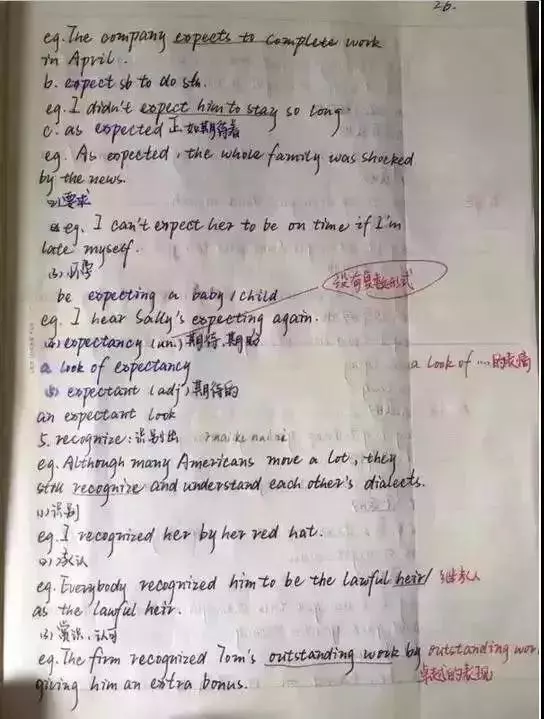 26.
eg. The company expects to complete work
in April.
b. expect sb to do sth.
eg. I didn't expect him to stay so long
c. as expected 正如期待者
eg. As expected, the whole family was shocked
by the news.
(2) 要求
eg. I can't expect her to be on time if I'm
late myself.
(3) 怀孕
be expecting a baby / child 没有复数形式
eg. I hear Sally's expecting again.
(4) expectancy (un.) 期待、期盼
a look of expectancy a look of ... 的表情
(5) expectant (adj) 期待的
an expectant look
5. recognize: 识别出
eg. Although many Americans move a lot, they
still recognize and understand each other's dialects.
(1) 识别
eg. I recognized her by her red hat.
(2) 承认
eg. Everybody recognized him to be the lawful heir / 继承人
as the lawful heir.
(3) 赏识、认可
eg. The firm recognized Tom's outstanding work by outstanding wor
giving him an extra bonus. 卓越的表现